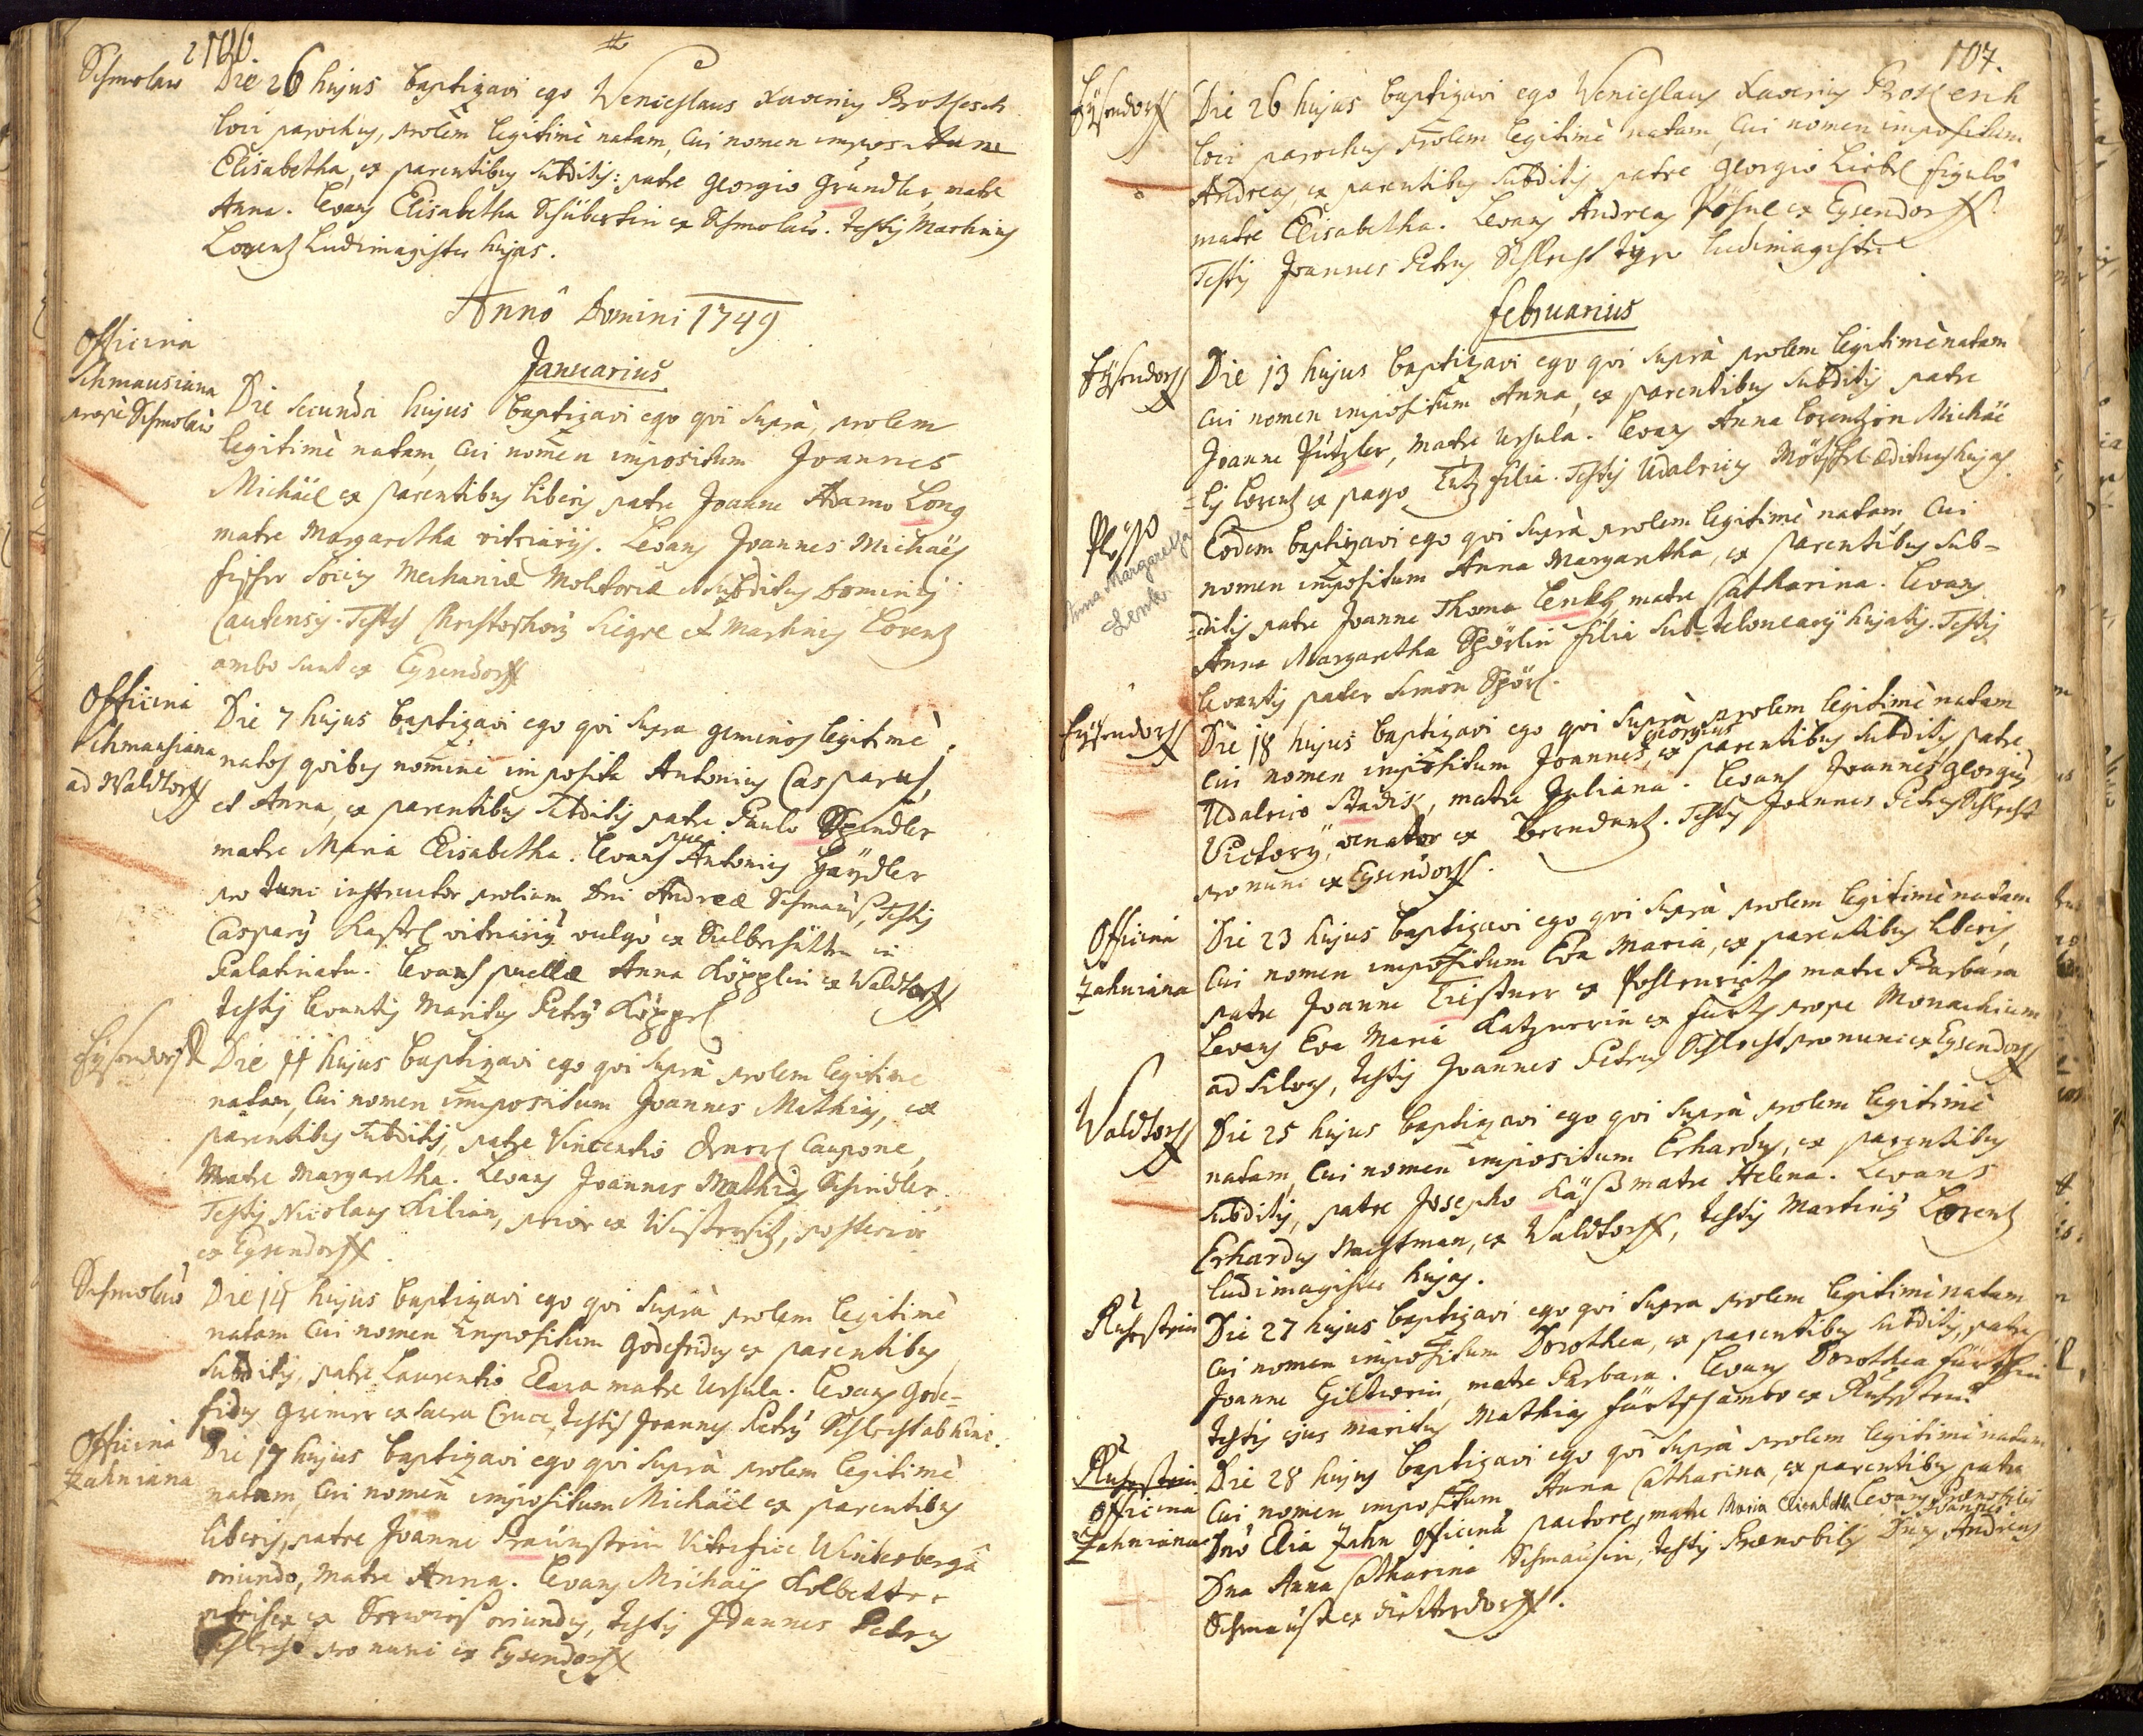 Schmolau
Die 26 hujus baptizavi ego Wenceslaus Xaverius
loci parochus, prolem legitimè natam, cui nomen impos. Anna
Elisabetha, ex parentibus subditis: patre Georgio Gründler, matre
Anna. Levans Elisabetha Schubertin ex Schmolau. testis Martinus
Lorentz Ludimagister hujas.
Annô Domini 1749
Januarius
Officina
Schmausiana
propè Schmolau
Die secunda hujus baptizavi ego qvi suprà, prolem
legitimè natam, cui nomen impositum Joannes
Michäel ex parentibus liberis patre Joanne Adamo Long
matre Margaretha vitriarijs. Levans Joannes Michäel
fischer socius Mechaniæ Molitoriæ subditus Dominij
Cautensis. Testes Christophorus et Martinus Lorentz
ambo sunt ex Eysendorff
Officina
Schmausiana
ad Waldtorff
Die 7 hujus baptizavi ego qvi supra geminos legitimè
natos qvibus nomina imposita Antonius Casparus,
et Anna, ex parentibus subditis patre Paulo Spindler
matre Maria Elisabetha. Levans pueri Antonius
pro tunc instructor prolium Dni Andreæ Schmauß, Testis
Casparus vitriarius vulgò ex Silberhütten in
Palatinatu. Levans puellæ Anna Köpplin ex Waldtorff
testis levantis Maritus Petrus Köppel
Eysendorff
Die 11 hujus baptizavi ego qvi suprà prolem legitime
natam, cui nomen impositum Joannes Mathias, ex
parentibus subditis, patre Vincentio caupone,
Matre Margaretha. Levans Joannes Mathias Schindler,
Testis Nicolaus Kilian, prior ex posterior
ex Eysendorff.
Schmolau
Die 14 hujus baptizavi ego qvi suprà prolem legitimè
natam cui nomen impositum Godefridus ex parentibus
subditis, patre Laurentio matre Ursula. Levans Gode-
fridus ex Sacra Cruce, testis Joannes Petrus Schlecht ab hinc.
Officina
Zahniana
Die 17 hujus baptizavi ego qvi suprà prolem legitimè
natam, cui nomen impositum Michäel ex parentibus
liberis, patre Joanne Praunstein Vitrifice Winterbergâ
oriundo, matre Anna. Levans Michäel
ex oriundus, testis Joannes Petrus
Schlecht pro nunc ex Eysendorff
107.
Eysendorff
Die 26 hujus baptizavi ego Wenceslaus Xaverius
loci parochus prolem legitimè natam, cui nomen impositum
Andreas, ex parentibus subditis patre Georgio Liebl figulô
matre Elisabetha. Levans Andreas ex Eysendorff.
Testis Joannes Petrus Schlecht ludimagistri
Februarius
Eysendorff
Die 13 hujus baptizavi ego qvi suprà prolem legitimè natam
cui nomen impositum Anna, ex parentibus subditis patre
Joanne Putzler, matre Ursula. Levans Anna Lorentzin Michäe
=lis Lorentz ex pago filia. Testis Udalricus ædituus hujas
Anna Margaretha
Lenk
Eodem baptizavi ego qvi suprà prolem legitimè natam cui
nomen impositum Anna Margaretha, ex parentibus sub=
=ditis patre Joanne Thoma Lenk, matre Catharina. Levans
Anna Margaretha Spörlin filia sub-teloneary hujatis. Testis
levantis pater Simon Spörl.
Eysendorff
Die 18 hujus baptizavi ego qvi suprà prolem legitimè natam
cui nomen impositum Joannes Georgius, ex parentibus subditis, patre
Udalrico, matre Juliana. Levans Joannes Georgius
Victory, venator ex. Testis Joannes Petrus Schlecht
pro nunc ex Eysendorff.
Officina
Zahniana
Die 23 hujus baptizavi ego qvi suprà prolem legitimè natam
cui nomen impositum Eva Maria, ex parentibus liberis,
patre Joanne ex matre Barbara
Levans Eva Maria Katznerin ex furth prope Monachium
ad Silvas, testis Joannes Petrus Schlecht pro nunc ex Eysendorff
Waldtorff
Die 25 hujus baptizavi ego qvi suprà prolem legitimè
natam, cui nomen impositum Erhardus, ex parentibus
subditis, patre Josepho Käß matre Helena. Levans
Erhardus Nachtman, ex Waldtorff, testis Martinus Lorentz
ludimagister hujas.
Ruhestein
Die 27 hujus baptizavi ego qvi supra prolem legitimè natam
cui nomen impositum Dorothea, ex parentibus subditis, patre
Joanne, matre Barbara. Levans Dorothea
testis ejus maritus Mathias ambo ex Ruhestein.
Ruhestein
Officina
Zahniana
Die 28 hujus baptizavi ego qvi suprà prolem legitimè natam
cui nomen impositum Anna Catharina, ex parentibus patre
Dno Elia Zahn Officinæ pactore, matre Maria Elisabetha Levans Prænobilis
Dna Anna Catharina Schmausin, testis Prænobilis Dnus Joannes Andreas
Schmaus ex